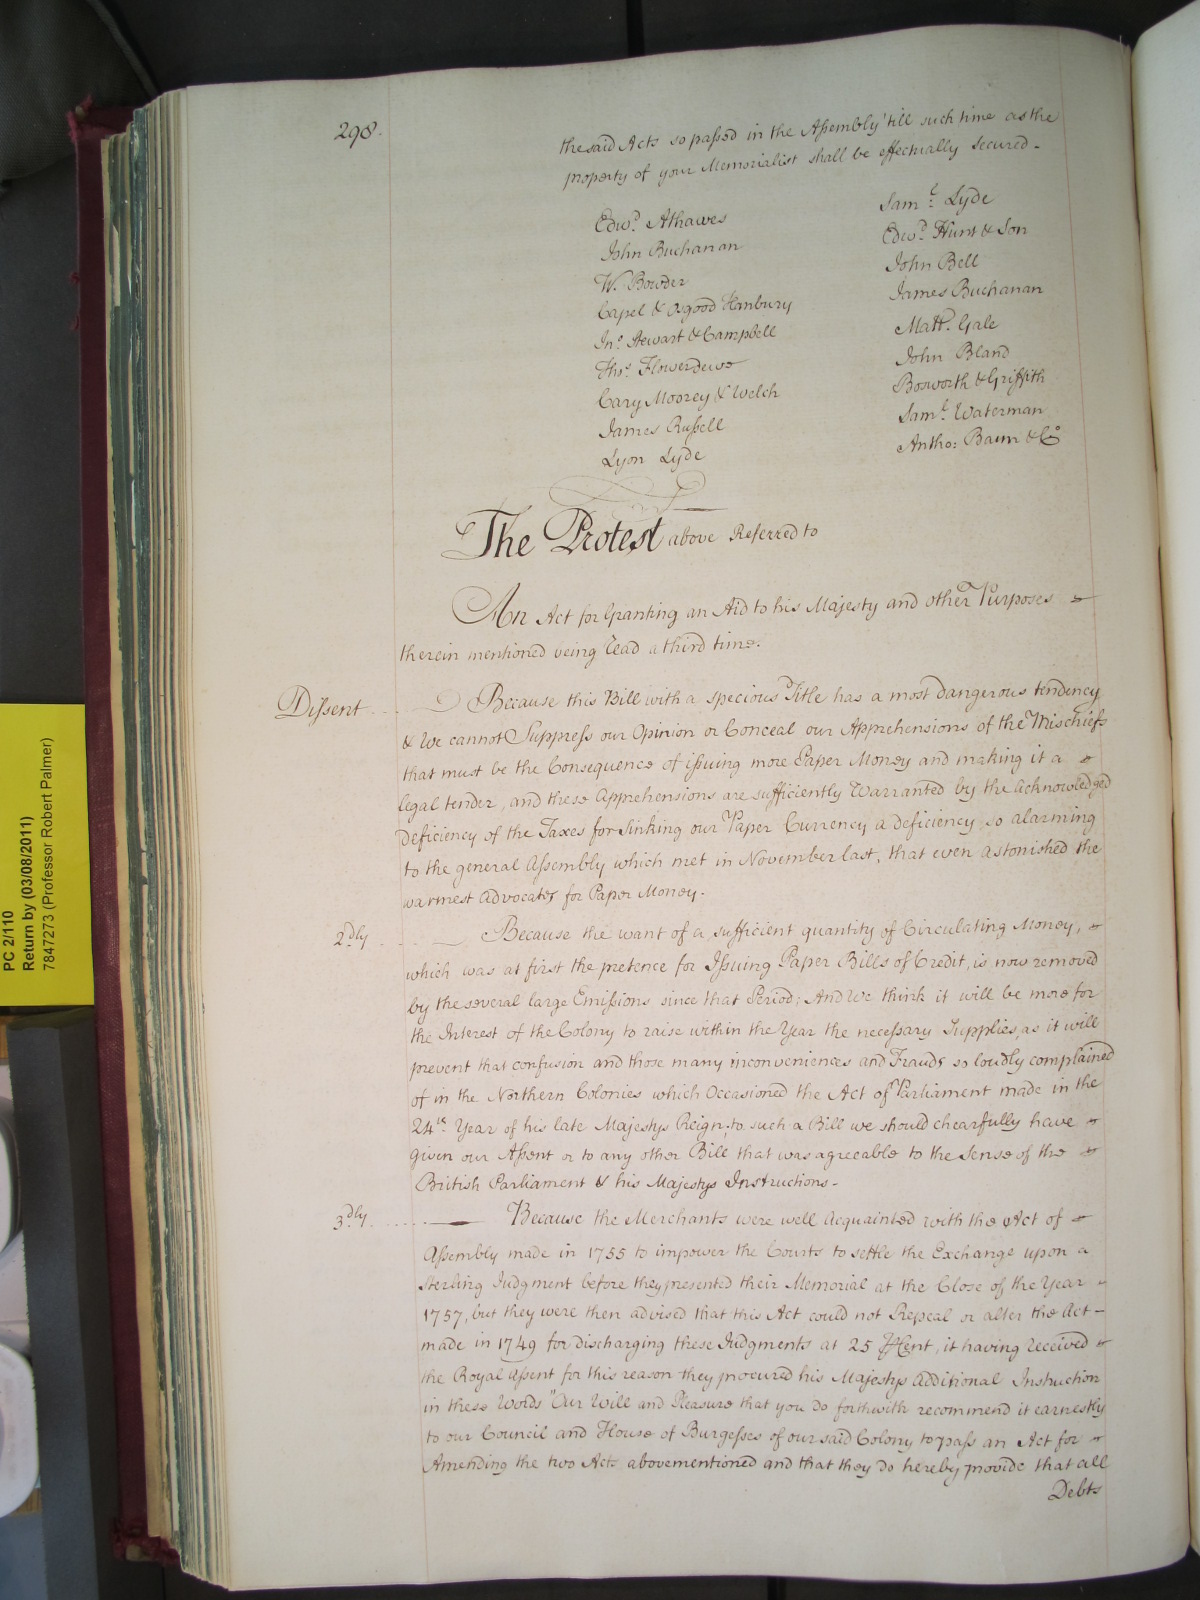 298.
the said Acts so passed in the Assembly 'till such time as the
property of your Memorialist shall be effectually secured.
Edwd. Athawes
John Buchanan
W. Bowder
Capel & Osgood Hanbury
Jno. Stewart & Campbell
Thos. Flowerdewe
Cary Moorey & Welch
James Russell
Lyon Lyde
Saml. Lyde
Edwd. Hunt & Son
John Bell
James Buchanan
Matt. Gale
John Bland
Bosworth & Griffith
Saml. Waterman
Antho: Bacon & Co
The Protest above Referred to
An Act for Granting an Aid to his Majesty and other Purposes
therein mentioned being read a third time.
Dissent
Because this Bill with a specious Title has a most dangerous tendency
& We cannot Suppress our Opinion or Conceal our Apprehensions of the Mischiefs
that must be the Consequence of issuing more Paper Money and making it a
legal tender, and these Apprehensions are sufficiently Warranted by the Acknowledged
deficiency of the Taxes for Sinking our Paper Currency a deficiency so alarming
to the general Assembly which met in November last, that even astonished the
warmest advocates for Paper Money.
2dly
Because the want of a sufficient quantity of Circulating Money,
which was at first the pretence for Issuing Paper Bills of Credit, is now removed
by the several large Emissions since that Period; And We think it will be more for
the Interest of the Colony to raise within the Year the necessary Supplies, as it will
prevent that confusion and those many inconveniences and Frauds so loudly complained
of in the Northern Colonies which Occasioned the Act of Parliament made in the
24th Year of his late Majestys Reign; to such a Bill we should chearfully have
given our Assent or to any other Bill that was agreeable to the Sense of the
British Parliament & his Majestys Instructions.
3dly
Because the Merchants were well Acquainted with the Act of
Assembly made in 1755 to impower the Courts to settle the Exchange upon a
Sterling Judgment before they presented their Memorial at the Close of the Year
1757, but they were then advised that this Act could not Repeal or alter the Act
made in 1749 for discharging these Judgments at 25 ⅌ Cent, it having received
the Royal Assent for this reason they procured his Majestys Additional Instruction
in these Words "Our Will and Pleasure that you do forthwith recommend it earnestly
to our Council and House of Burgesses of our said Colony to pass an Act for
Amending the two Acts abovementioned and that they do hereby provide that all
Debts
PC 2/110
Return by (03/08/2011)
7847273 (Professor Robert Palmer)